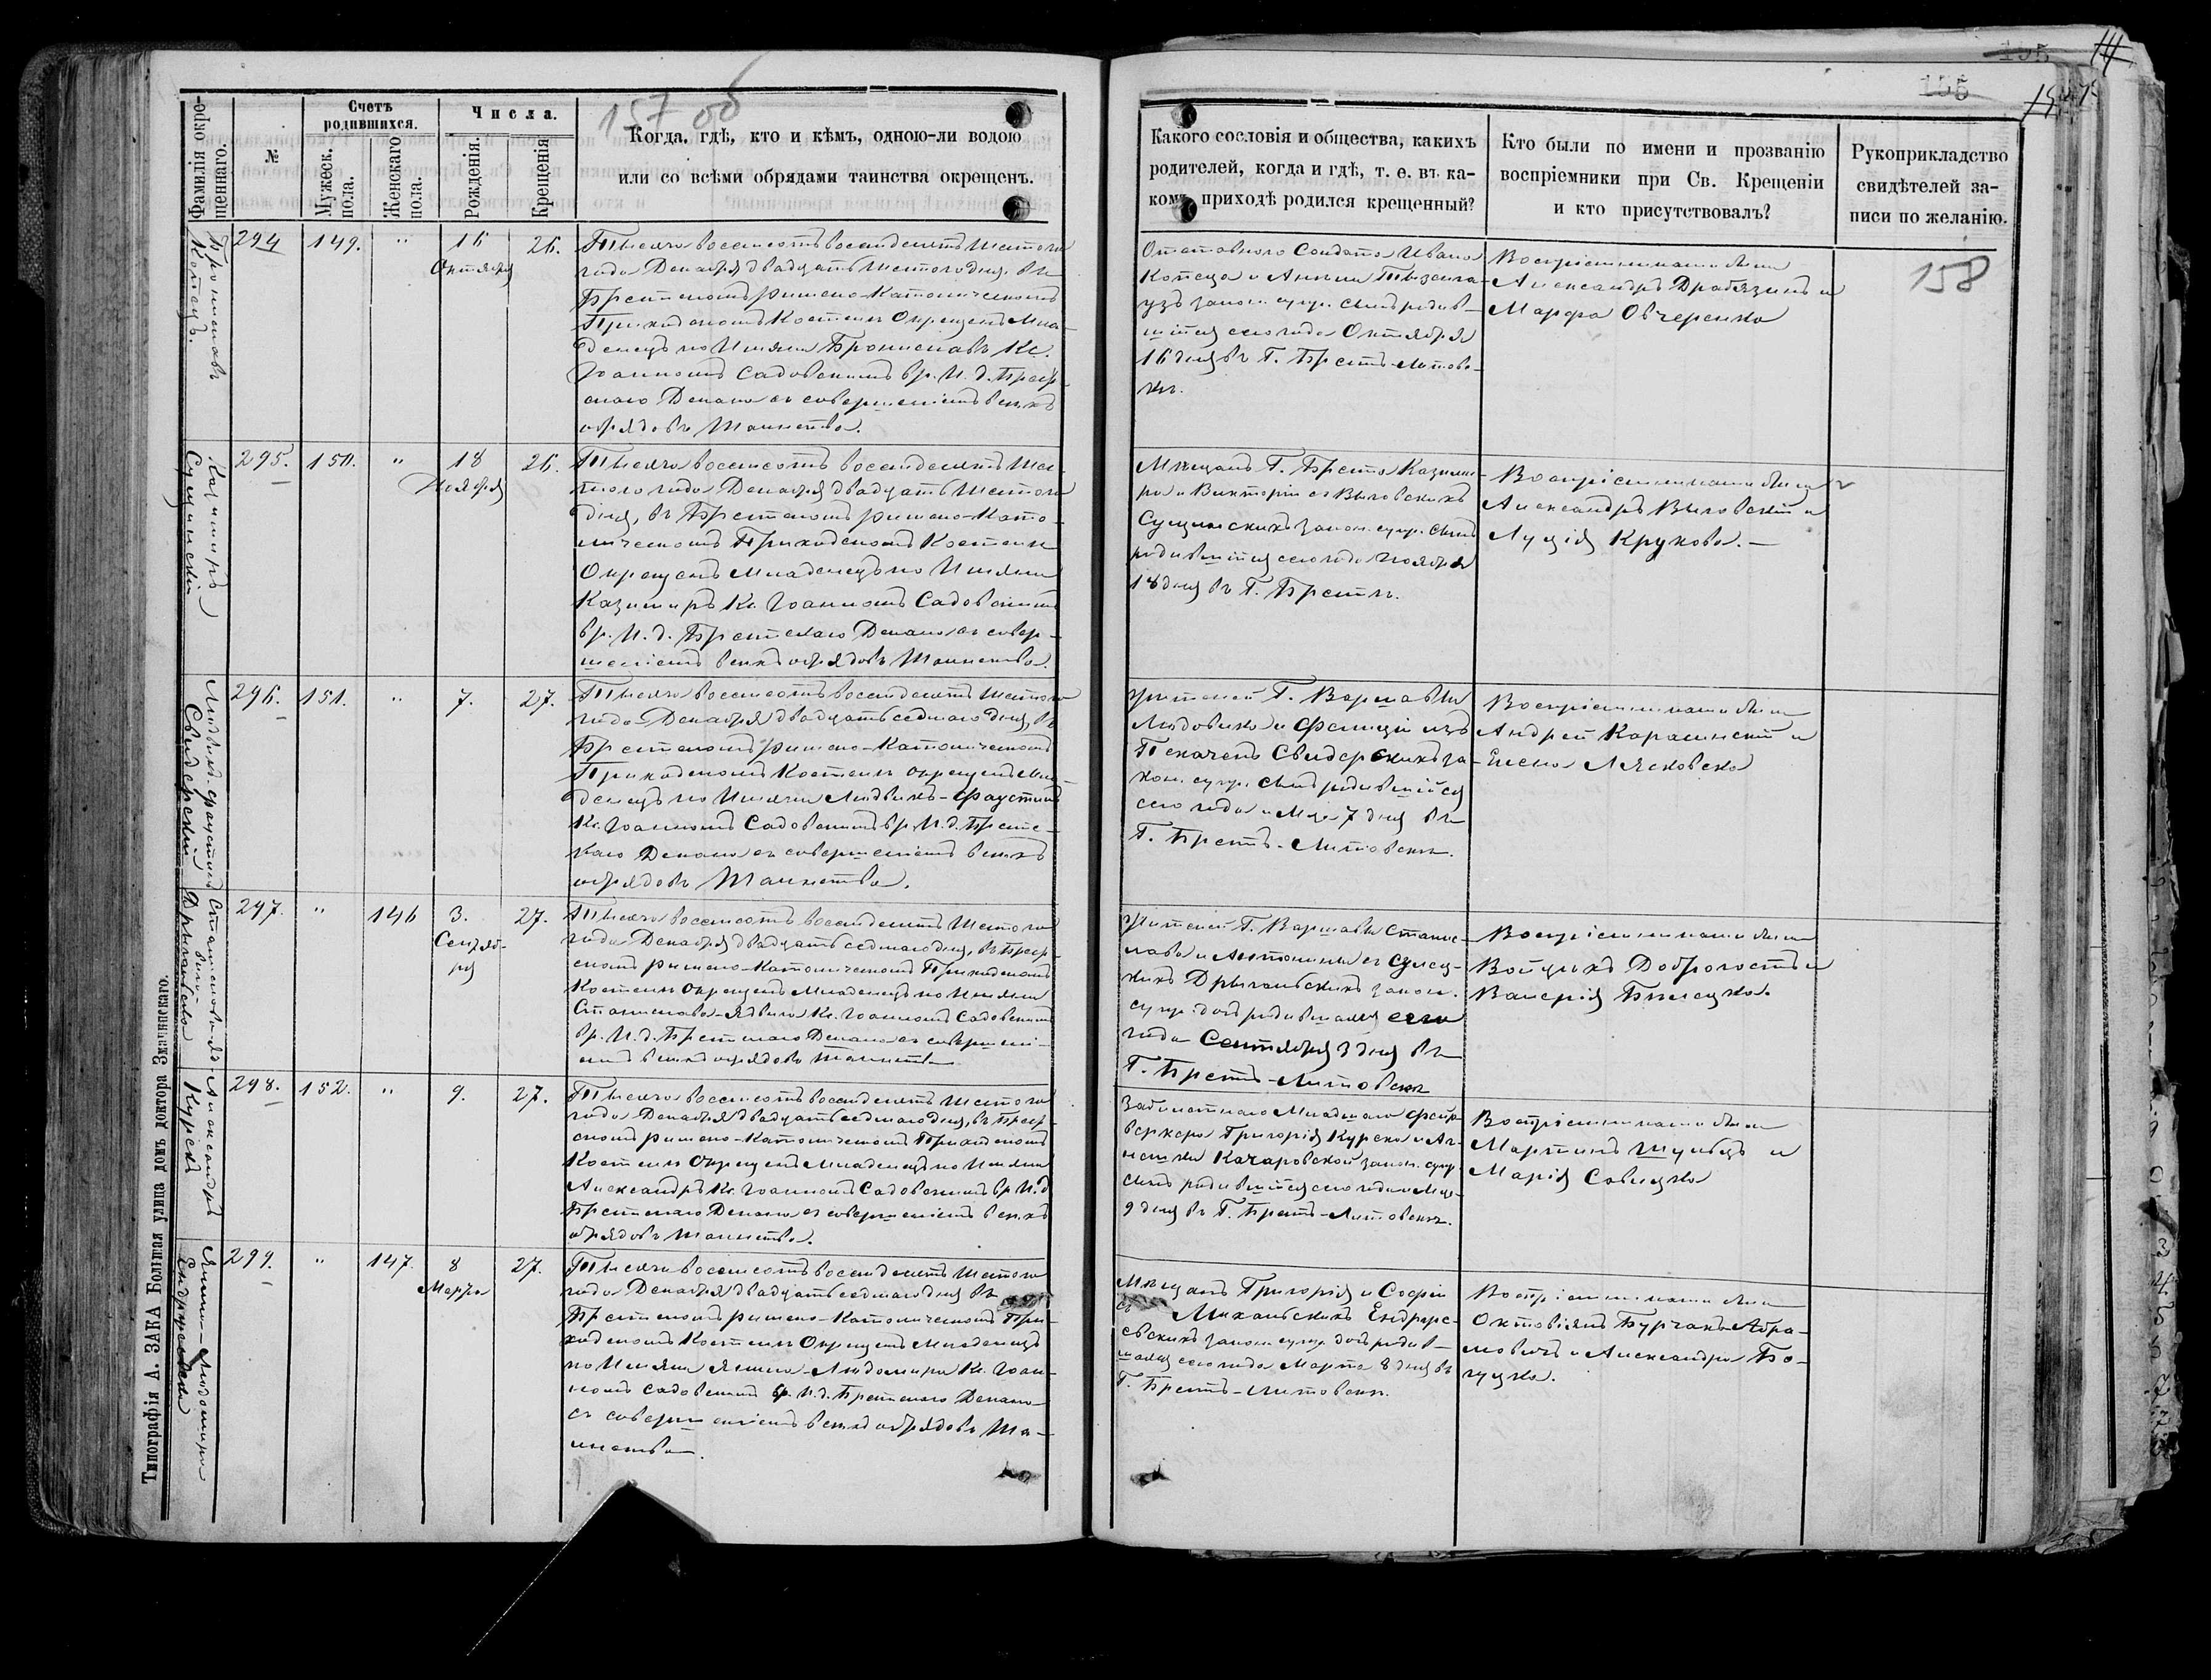 157 об
155
155
158
Фамилія окре-
щеннаго.
№
Счетъ
родившихся.
Мужеск.
пола.
Женскаго
пола.
Числа.
Рожденія.
Крещенія
Когда, гдѣ, кто и кѣмъ, одною-ли водою
или со всѣми обрядами таинства окрещенъ.
Какого сословія и общества, какихъ
родителей, когда и гдѣ, т. е. въ ка-
комъ приходѣ родился крещенный?
Кто были по имени и прозванію
воспріемники при Св. Крещеніи
и кто присутствовалъ?
Рукоприкладство
свидѣтелей за-
писи по желанію.
Брониславъ
Копецъ.
294 149. " 16 26.
Октября
Тысяча восемсотъ восемдесятъ шестого
года Декабря двадцать шестого дня, въ
Брестскомъ римско-Католическомъ
Приходскомъ Костелѣ Окрещенъ Мла-
денецъ по Имяни Брониславъ Кс.
Іоанномъ Садовскимъ вр. И. д. Брест-
скаго Декана съ совершеніемъ всѣхъ
обрядовъ Таинства.
Отставного Солдата Ивана
Копеца и Анны
закон. супр. сынъ родив-
шійся сего года Октября
16 дня въ Г. Брестъ-Литовс-
кѣ.
Воспріемниками были
Александръ Драбязинъ и
Марфа Овчеренко
Казимиръ
Сущинскій
295. 150. " 18 26.
Ноября
Тысяча восемсотъ восемдесятъ шес-
того года Декабря двадцать шестого
дня, въ Брестскомъ римско-Като-
лическомъ Приходскомъ Костелѣ
Окрещенъ Младенецъ по Имяни
Казимиръ Кс. Іоанномъ Садовскимъ
вр. И. д. Брестскаго Декана съ совер-
шеніемъ всѣхъ обрядовъ Таинства.
Мѣщанъ Г. Бреста Казими-
ра и Викторіи съ Выговскихъ
Сущинскихъ закон. супр. сынъ
родившійся сего года Ноября
18 дня въ Г. Брестѣ.
Воспріемниками были
Александръ Выговскій и
Луція Крукова.
Людвикъ-Фаустинъ
Свидерскій
296. 151. " 7. 27.
Тысяча восемсотъ восемдесятъ шестого
года Декабря двадцать седмаго дня, въ
Брестскомъ римско-Католическомъ
Приходскомъ Костелѣ окрещенъ Мла-
денецъ по Имяни Людвикъ-Фаустинъ
Кс. Іоанномъ Садовскимъ вр. И. д. Брестс-
каго Декана съ совершеніемъ всѣхъ
обрядовъ Таинства.
Жителей Г. Варшавы
Людовика и Фелиціи изъ
Свидерскихъ за-
кон. супр. сынъ родившійся
сего года и М-ца 7 дня въ
Г. Брестъ-Литовскѣ.
Воспріемниками были
Андрей Карасинскій и
Елена Лясковска
Станислава-Яд-
вига
Дрыгальска
297. " 146 3. 27.
Сентяб-
ря
Тысяча восемсотъ восемдесятъ шестого
года Декабря двадцать седмаго дня, въ Брест-
скомъ римско-Католическомъ Приходскомъ
Костелѣ Окрещенъ Младенецъ по Имяни
Станислава-Ядвига Кс. Іоанномъ Садовскимъ
вр. И. д. Брестскаго Декана съ совершені-
емъ всѣхъ обрядовъ Таинства
Жителей Г. Варшавы Станис-
лава и Антонины съ
Дрыгальскихъ закон.
супр. дочь родившаяся сего
года Сентября 3 дня въ
Г. Брестъ-Литовскѣ
Воспріемниками были
Войцехъ Доброгостъ и
Валерія
Александръ
Курекъ
298. 152. " 9. 27.
Тысяча восемсотъ восемдесятъ шестого
года Декабря двадцать седмаго дня, въ Брест-
скомъ римско-Католическомъ Приходскомъ
Костелѣ Окрещенъ Младенецъ по Имяни
Александръ Кс. Іоанномъ Садовскимъ вр. И. д.
Брестскаго Декана съ совершеніемъ всѣхъ
обрядовъ Таинства.
Младшаго фейер-
веркера Григорія Курека и Аг-
нешки Качаровской закон. супр.
сынъ родившійся сего года и М-ца
9 дня въ Г. Брестъ-Литовскѣ.
Воспріемниками были
Мартинъ Шульцъ и
Марія Савицка
Янина-Людомира
Ендржеевска
299. " 147. 8 27.
Марта
Тысяча восемсотъ восемдесятъ шестого
года Декабря двадцать седмаго дня въ
Брестскомъ римско-Католическомъ При-
ходскомъ Костелѣ Окрещенъ Младенецъ
по Имяни Янина-Людомира Кс. Іоан-
номъ Садовскимъ вр. И. д. Брестскаго Декана
съ совершеніемъ всѣхъ обрядовъ Та-
инства.
Мѣщанъ Григорія и Софіи
съ Михальскихъ Ендрже-
евскихъ закон. супр. дочь родив-
шаяся сего года Марта 8 дня въ
Г. Брестъ-Литовскѣ.
Воспріемниками были
Октовіянъ Бурчакъ-Абра-
мовичъ и Александра Бо-
гуцка.
Типографія А. ЗАКА Большая улица домъ доктора Зманскаго.